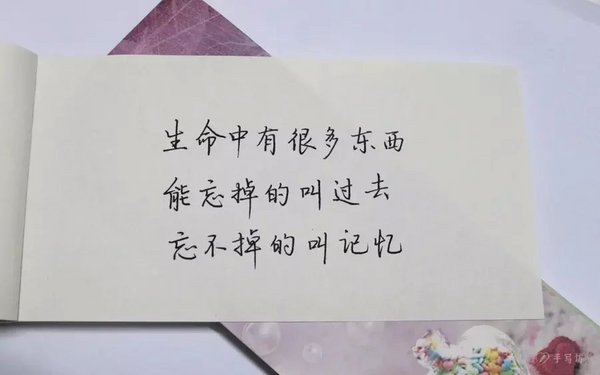 生命中有很多东西
能忘掉的叫过去
忘不掉的叫记忆
手写